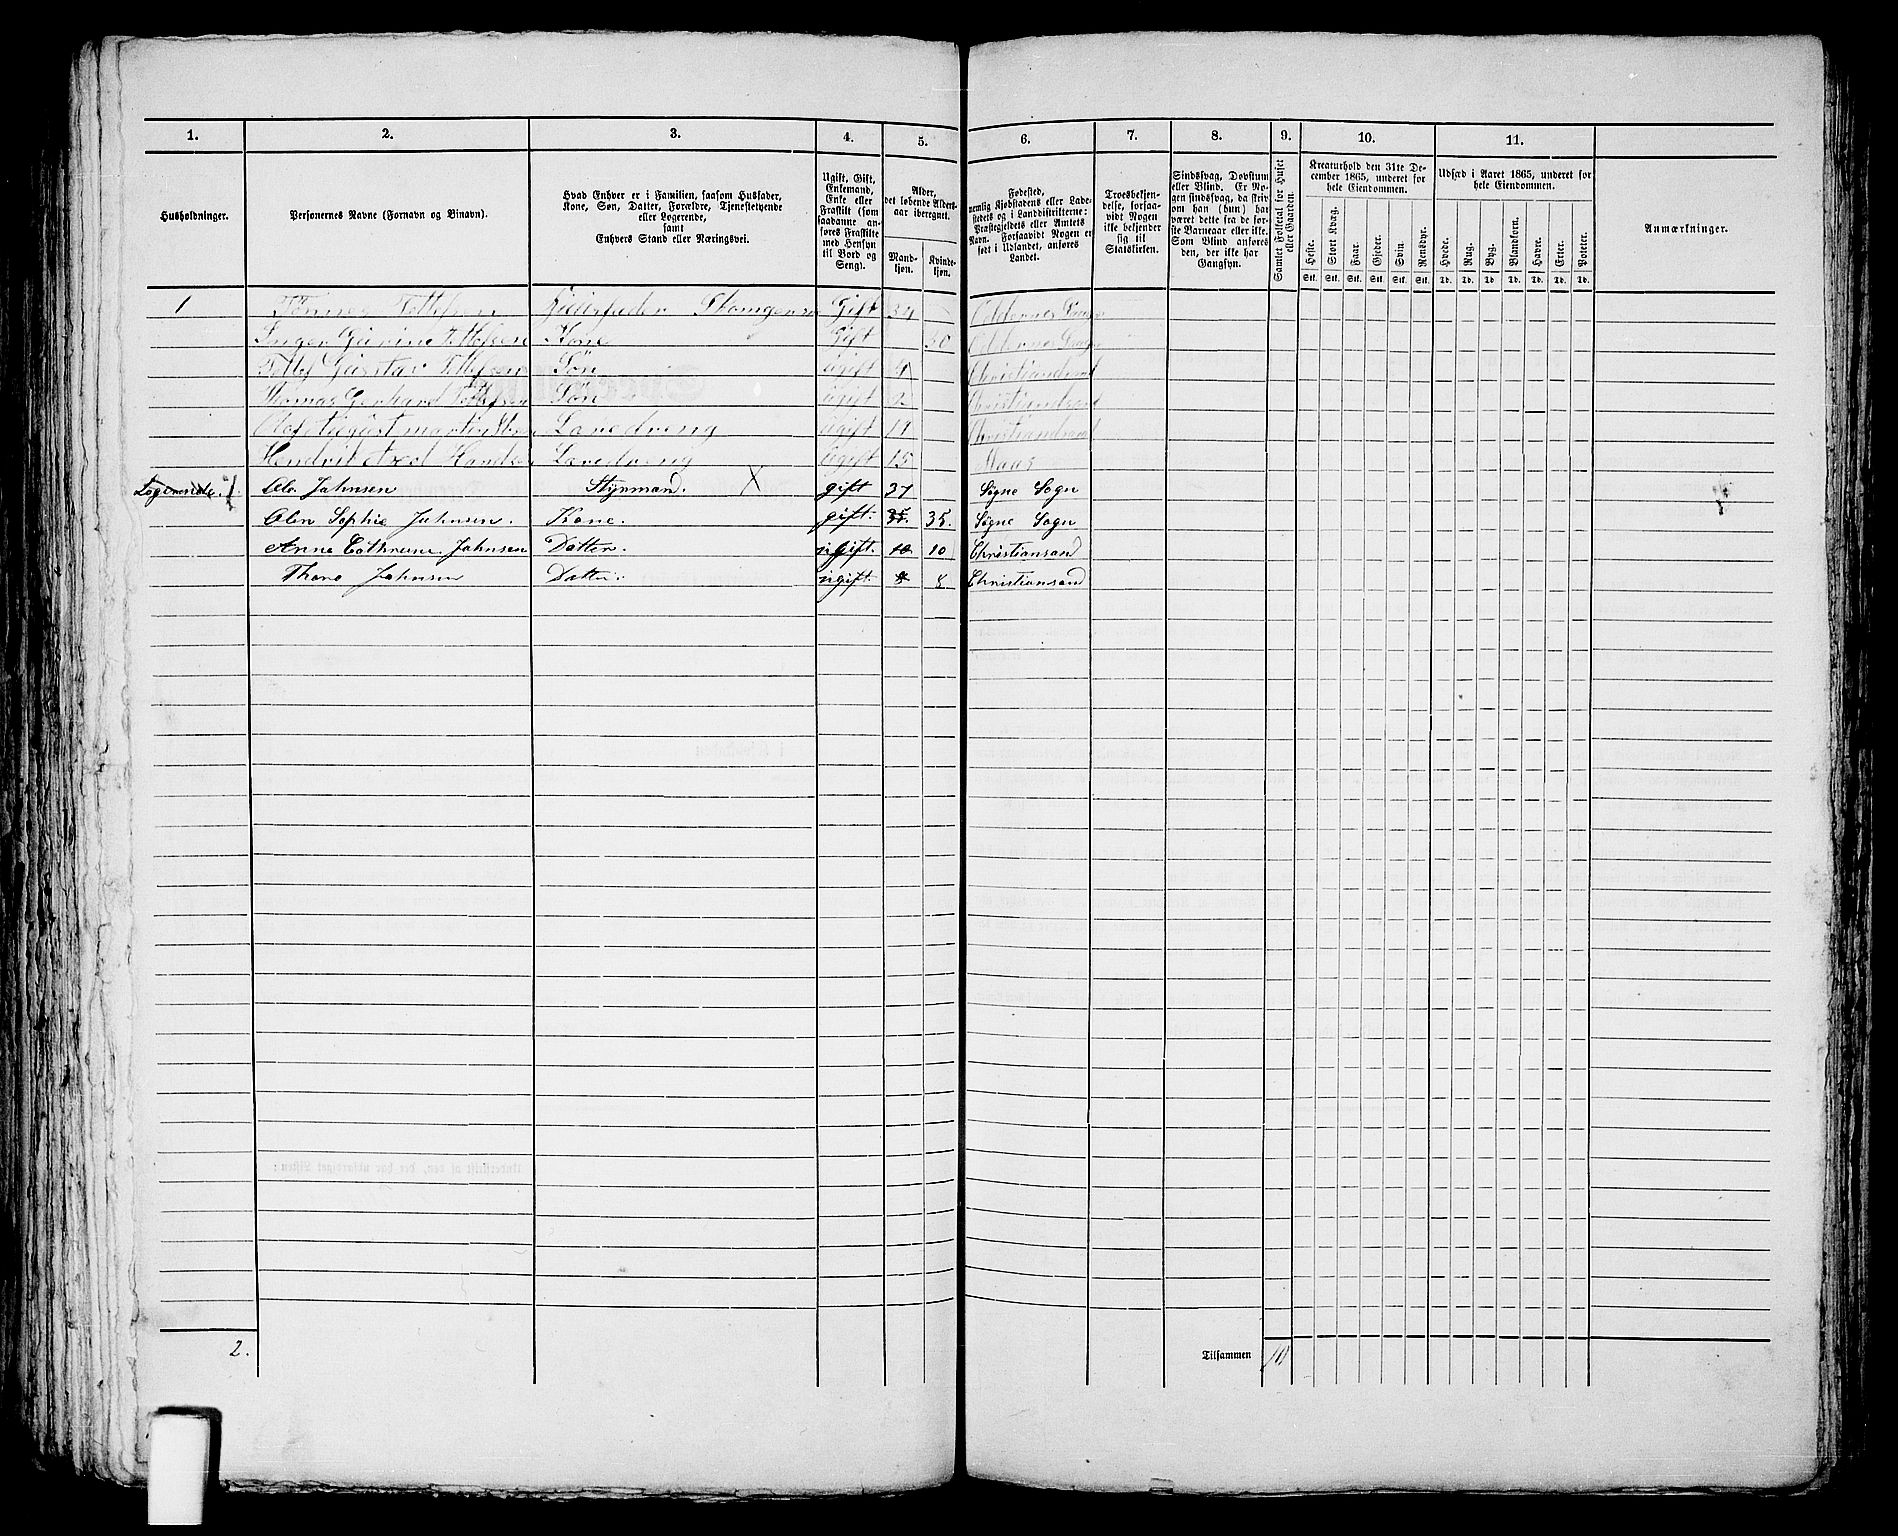 1. 2. 3. 4. 5. 6. 7. 8. 9. 10. 11.
Husholdninger.
Personernes Navne (Fornavn og Binavn).
Hvad Enhver er i Familien, saasom Husfader,
Kone, Søn, Datter, Forældre, Tjenestetyende
eller Logerende,
samt
Enhvers Stand eller Næringsvei.
Ugift, Gift,
Enkemand,
Enke eller
Fraskilt (som
saadanne an-
føres Fraskilte
med Hensyn
til Bord og
Seng).
Alder,
det løbende Alders-
aar iberegnet.
Mand-
kjøn.
Kvinde-
kjøn.
Fødested,
nemlig Kjøbstadens eller Lade-
stedets og i Landdistrikterne:
Præstegjeldets eller Amtets
Navn. Forsaavidt Nogen er
født i Udlandet, anføres
Landet.
Troesbekjen-
delse, forsaa-
vidt Nogen
ikke bekjender
sig til
Statskirken.
Sindssvag, Døvstum
eller Blind. Er No-
gen sindssvag, da skri-
ves om han (hun) har
været dette fra de før-
ste Barneaar eller ikke.
Som Blind anføres
den, der ikke har
Gangsyn.
Samlet Folketal for Huset
eller Gaarden.
Kreaturhold den 31te De-
cember 1865, underet for
hele Eiendommen.
Heste. Stort Kvæg. Faar. Gjeder. Svin. Rensdyr.
Stk. Stk. Stk. Stk. Stk. Stk.
Udsæd i Aaret 1865, underet for
hele Eiendommen.
Hvede. Rug. Byg. Blandkorn. Havre. Erter. Poteter.
Td. Td. Td. Td. Td. Td. Td.
Anmærkninger.
1 Tønnes Tellefsen Huusfader Gift 34 Oddernes Sogn
Inger Gurine Tellefsen Kone Gift 30 Oddernes Sogn
Tellef Gustav Tellefsen Søn ugift 4 Christiansand
Thomas Gerhard Tellefsen Søn ugift 2 Christiansand
Olof August martin Laredreng ugift 19 Christiansand
Hendrik Axel Laredreng ugift 15
Logerende. 1. Ole Jahnsen Styrmand. X gift 37 Søgne Sogn
Olen Sophie Jahnsen. Kone. gift. 35. 35. Søgne Sogn
Anne Cathrine Jahnsen Datter. ugift. 10 10 Christiansand
Thora Jahnsen Datter. ugift. 8 8 Christiansand
2. Tilsammen 10